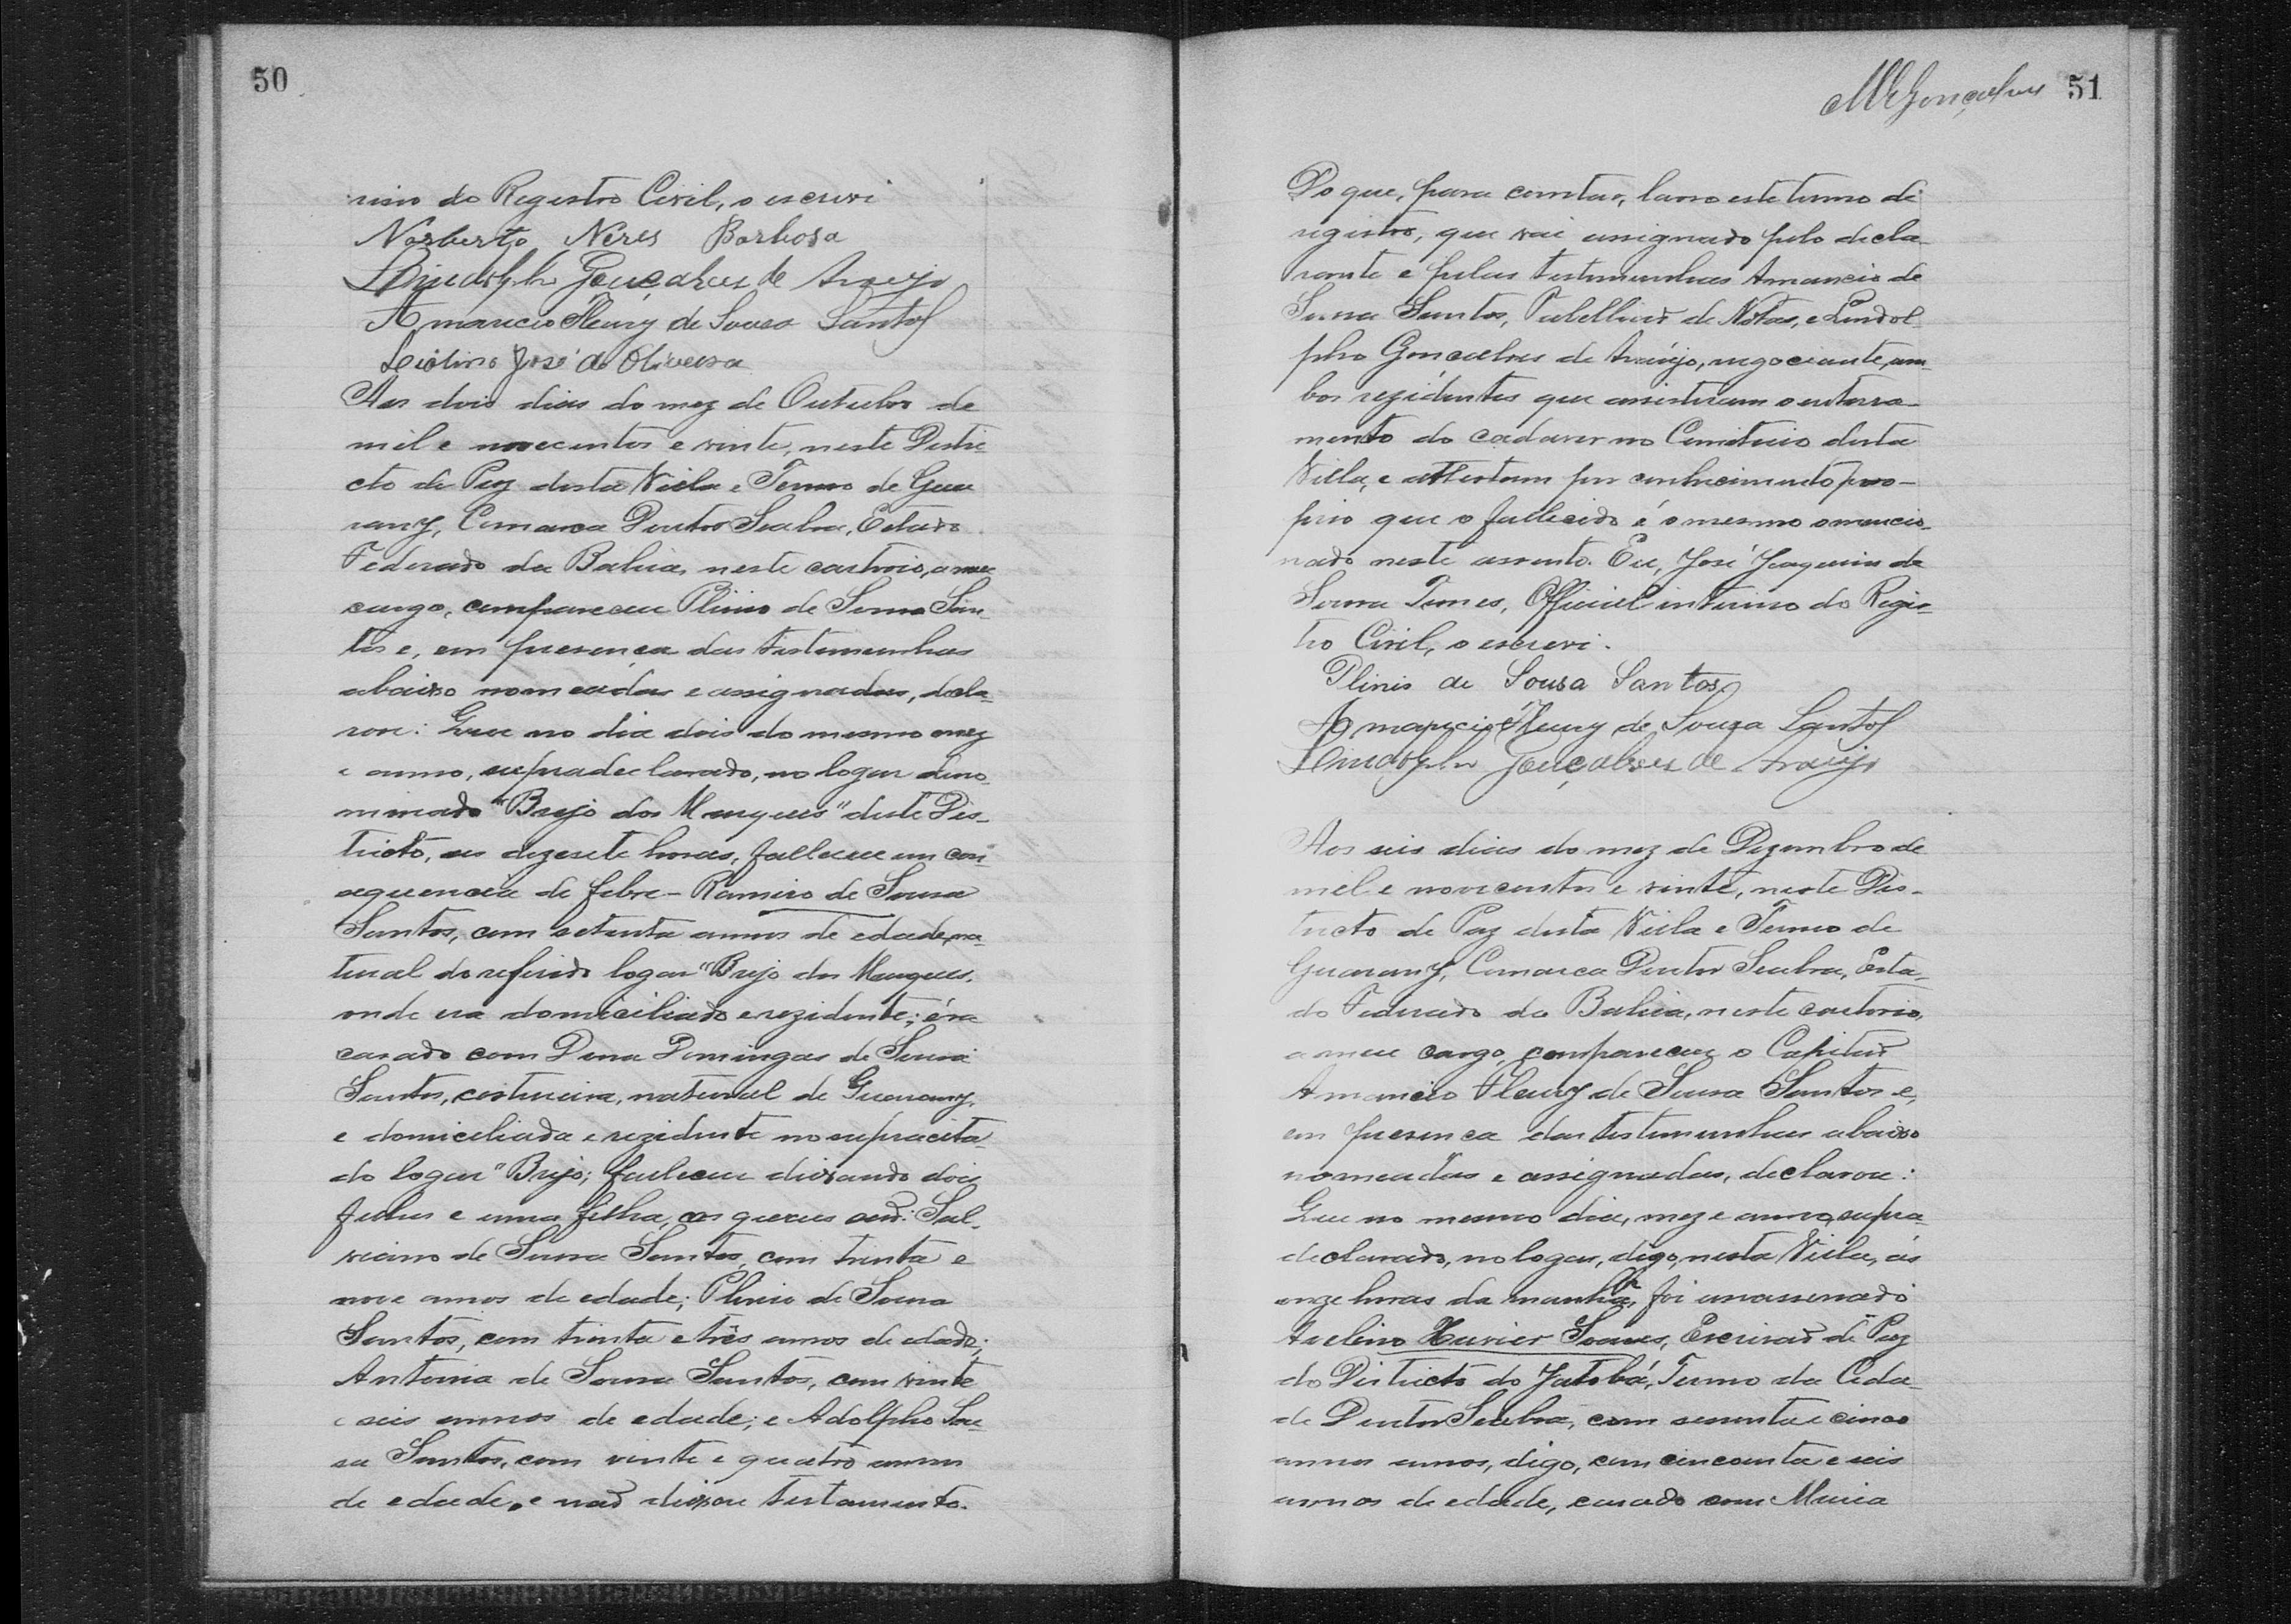 50
rino do Registro Civil, o escrevi
Norberto Neres Barbosa
Lindolpho Gonçalves de Araujo
Amancio Fleury de Souza Santos
Leolino José de Oliveira
Aos dois dias do mez de Outubro de
mil e novecentos e vinte, neste Distri
cto de Paz desta Villa e Termo de Gua
rany, Comarca Doutor Seabra, Estado
Federado da Bahia, neste cartorio, a meu
cargo, compareceu Plinio de Sousa San-
tos e, em presença das testemunhas
abaixo nomeadas e assignadas, decla-
rou: Que no dia dois do mesmo mez
e anno, supradeclarado, no logar deno
minado "Brejo dos Marques" deste Dis-
tricto, as dezesete horas, falleceu em con
sequencia de febre - Ramiro de Sousa
Santos, com setenta annos de edade, na-
tural do referido logar "Brejo dos Marques,
onde era domiciliado e rezidente; éra
casado com Dona Domingas de Sousa
Santos, costureira, natural de Guarany,
e domiciliada e rezidente no supracita-
do logar "Brejo; falleceu deixando dois
filhos e uma filha, os quaes são: Sal-
viano de Sousa Santos, com trinta e
nove annos de edade; Plinio de Sousa
Santos, com trinta e três annos de edade;
Antonia de Sousa Santos, com vinte
e seis annos de edade; e Adolpho Sou-
sa Santos, com vinte e quatro annos
de edade, e não deixou testamento.
MVGonçalves 51
Do que, para constar, lavro este termo de
registro, que vai assignado pelo decla-
rante e pelas testemunhas Amancio de
Sousa Santos, Tabellião de Notas, e Lindol
pho Gonçalves de Araújo, negociante, am-
bos rezidentes que assistiram o enterra-
mento do cadaver no Cemiterio desta
Villa, e attestam por conhecimento pro-
prio que o fallecido é o mesmo o mencio-
nado neste assento. Eu, José Joaquim de
Sousa Temes, Official interino do Regis-
tro Civil, o escrevi.
Plinio de Sousa Santos
Amancio Fleury de Souza Santos
Lindolpho Gonçalves de Araujo
Aos seis dias do mez de Dezembro de
mil e novecentos e vinte, neste Dis-
tricto de Paz desta Villa e Termo de
Guarany, Comarca Doutor Seabra, Esta-
do Federado da Bahia, neste cartorio,
a meu cargo, compareceu o Capitão
Amancio Fleury de Sousa Santos e,
em presença das testemunhas abaixo
nomeadas e assignadas, declarou:
Que no mesmo dia, mez e anno, supra-
declarado, no logar, digo, nesta Villa, ás
onze horas da manhã, foi assassinado
Avelino Xavier Soares, Escrivão de Paz
do Districto do Jatobá, Termo da Cida-
de Doutor Seabra, com sessenta e cinco
annos annos, digo, com cincoenta e seis
annos de edade, casado com Maria